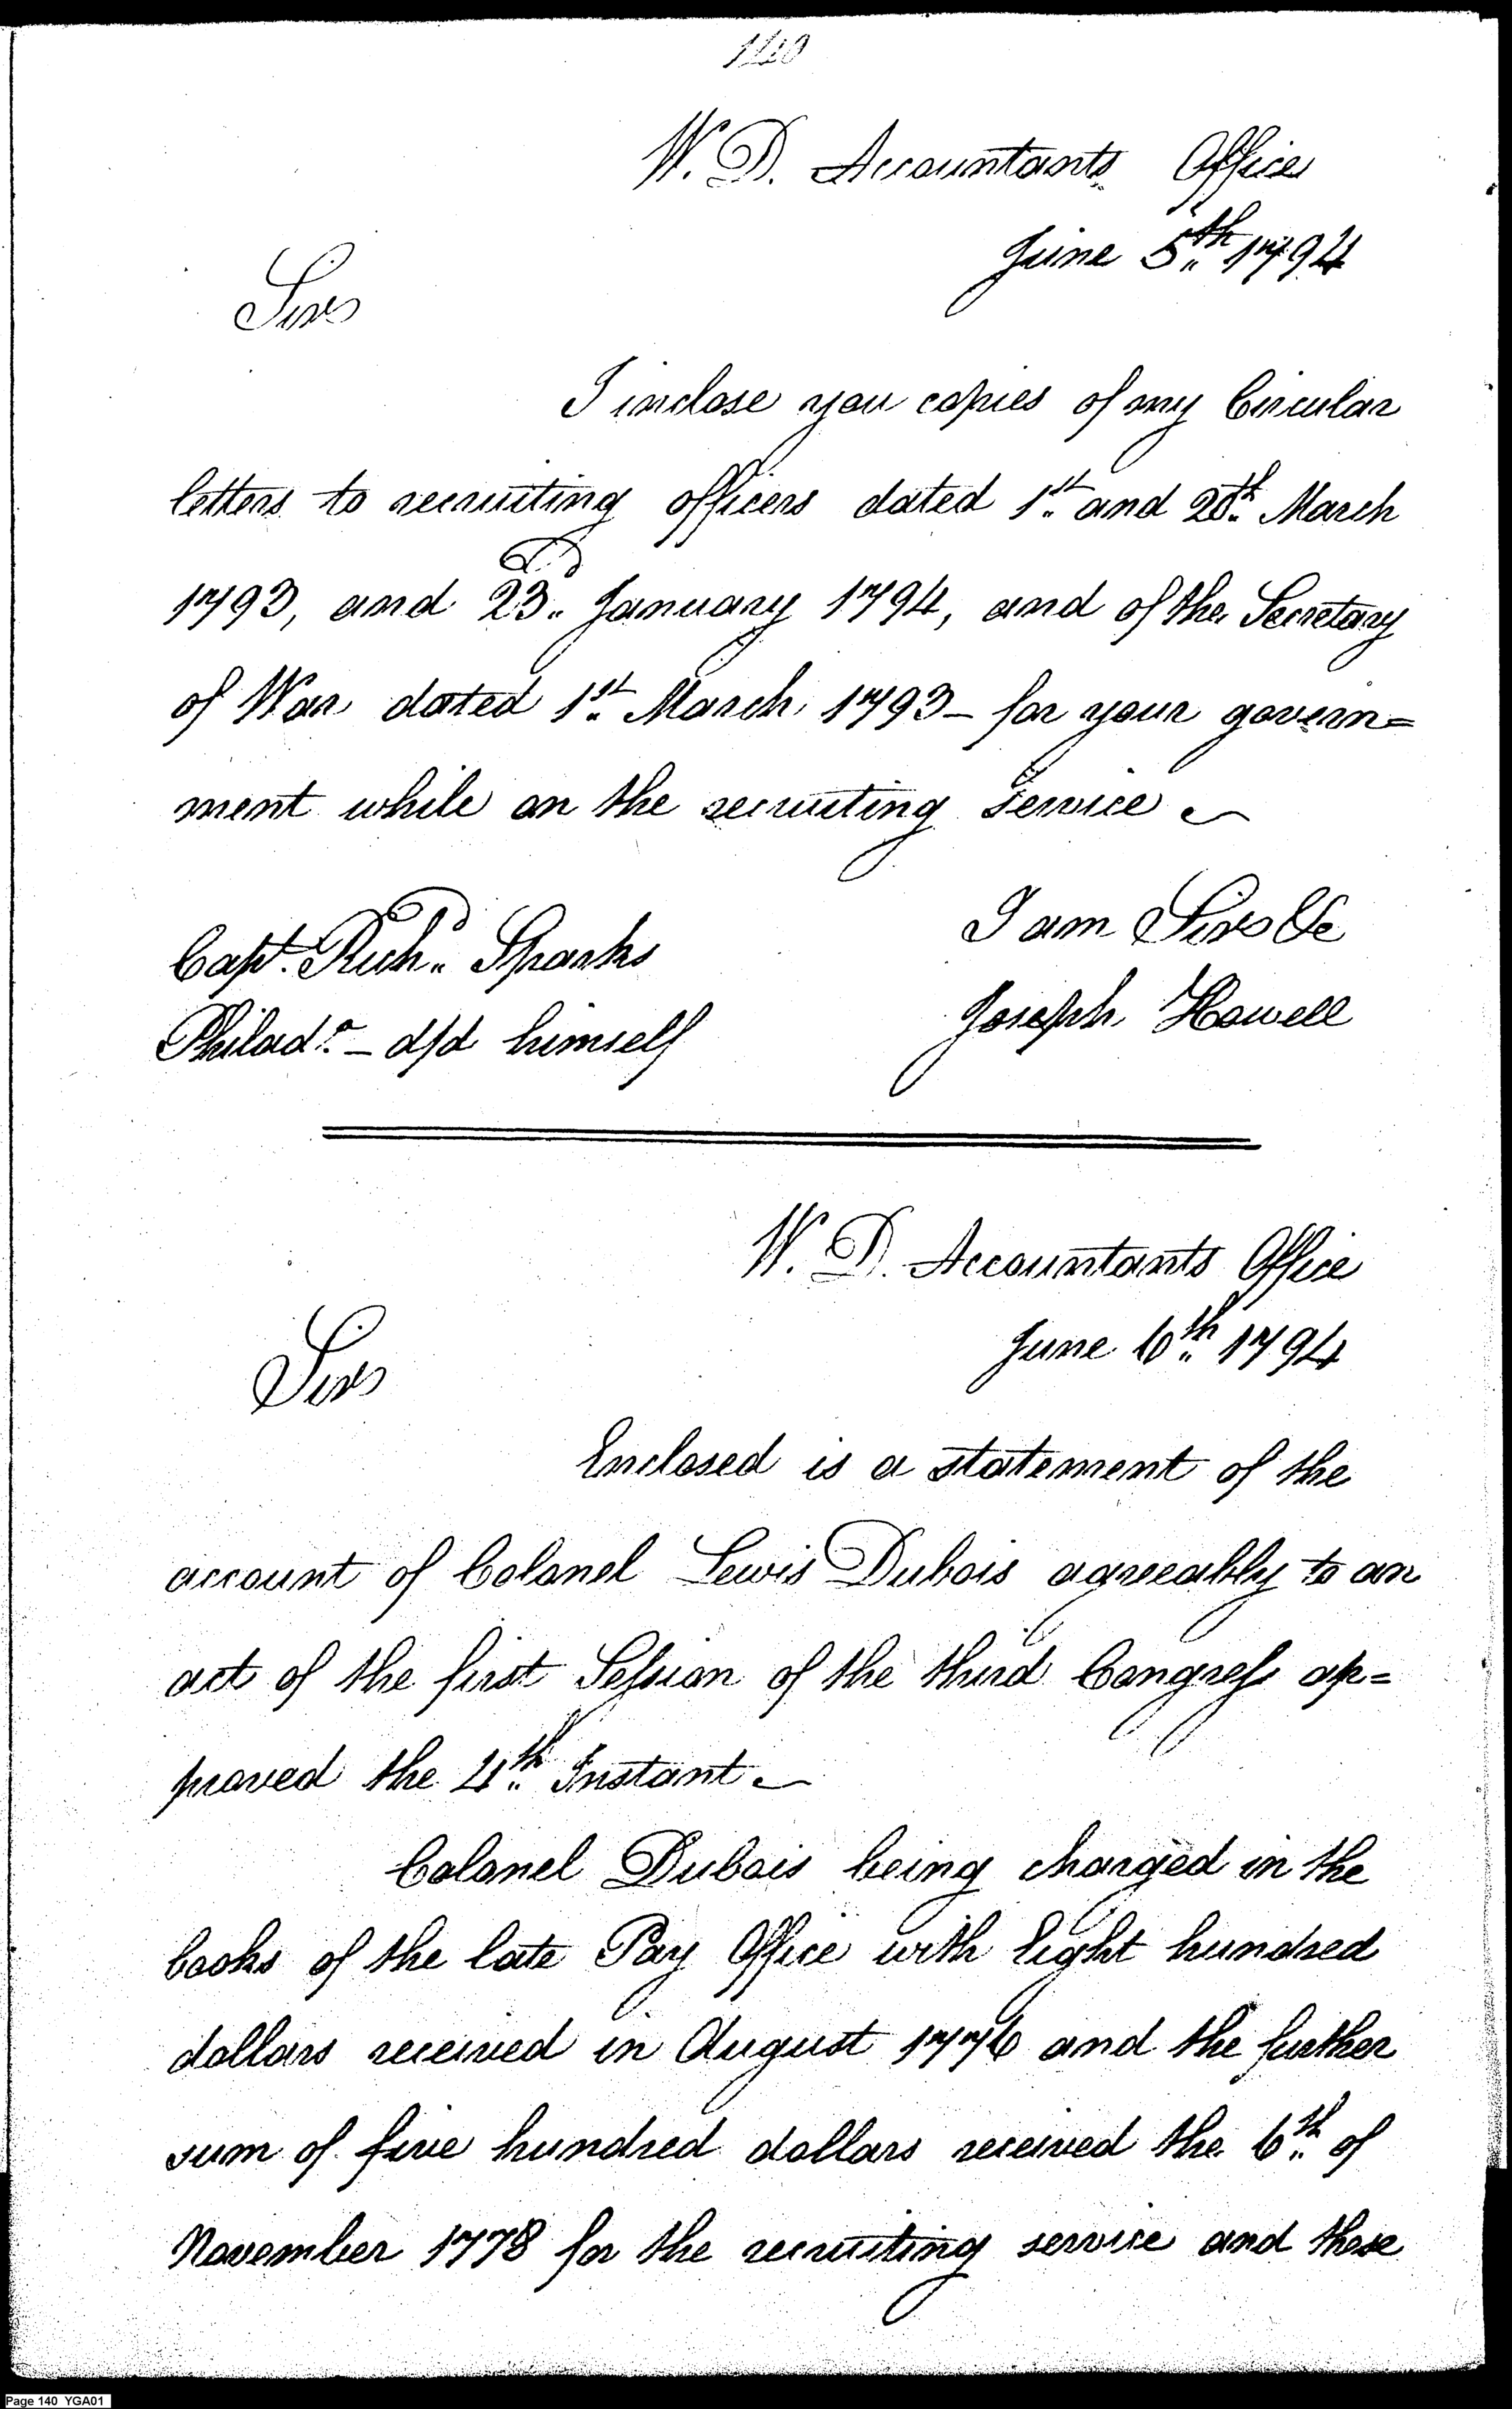 140
W. D. Accountants Office
June 5th 1794
Sir
I inclose you copies of my Circular
letters to recruiting officers dated 1st and 28th March
1793, and 23d January 1794, and of the Secretary
of War dated 1st March 1793 – for your govern=
ment while on the recruiting service
I am Sir &c
Capt. Richd Sparks
Joseph Howell
Philada – d/d himself
W. D. Accountants Office
June 6th 1794
Sir
Enclosed is a statement of the
account of Colonel Lewis Dubois agreeably to an
act of the first Session of the third Congress ap=
proved the 4th Instant –
Colonel Dubois being charged in the
books of the late Pay Office with Eight hundred
dollars received in August 1776 and the further
sum of five hundred dollars received the 6th of
November 1778 for the recruiting service and these
Page 140 YGA01